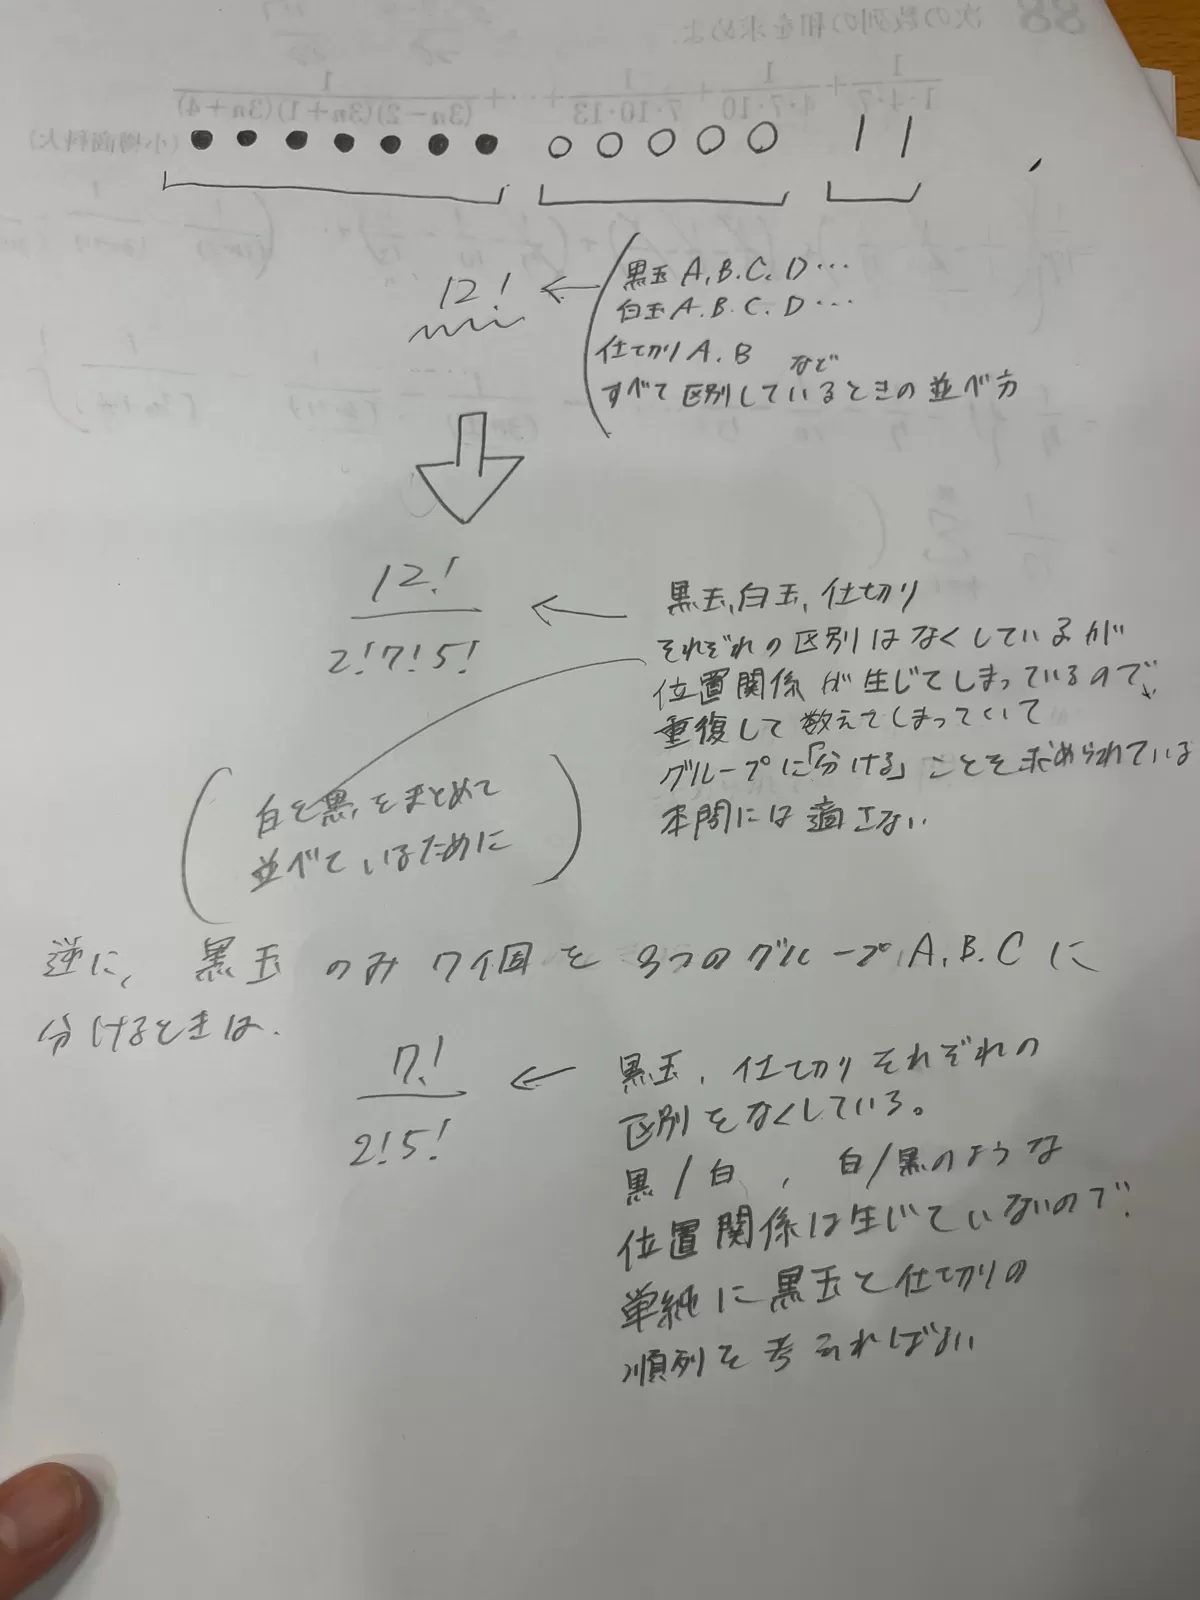 88 次の数列の和を求めよ.
1/1・4・7 + 1/4・7・10 + 1/7・10・13 + ⋯ + 1/(3n−2)(3n+1)(3n+4)
(小樽商科大)
12!
黒玉 A, B. C, D…
白玉 A. B. C, D…
仕切り A, B など
すべて 区別しているときの並べ方
12!
2!7!5!
黒玉, 白玉, 仕切り
それぞれの区別はなくしているが
位置関係が生じてしまっているので、
重複して数えてしまっていて
グループに「分ける」ことを求められている
本問には適さない
白と黒をまとめて
並べているために
逆に, 黒玉のみ7個を3つのグループA, B. Cに
分けるときは.
7!
2!5!
黒玉, 仕切りそれぞれの
区別をなくしている。
黒/白, 白/黒のような
位置関係は生じていないので.
単純に黒玉と仕切りの
順列を考えればよい